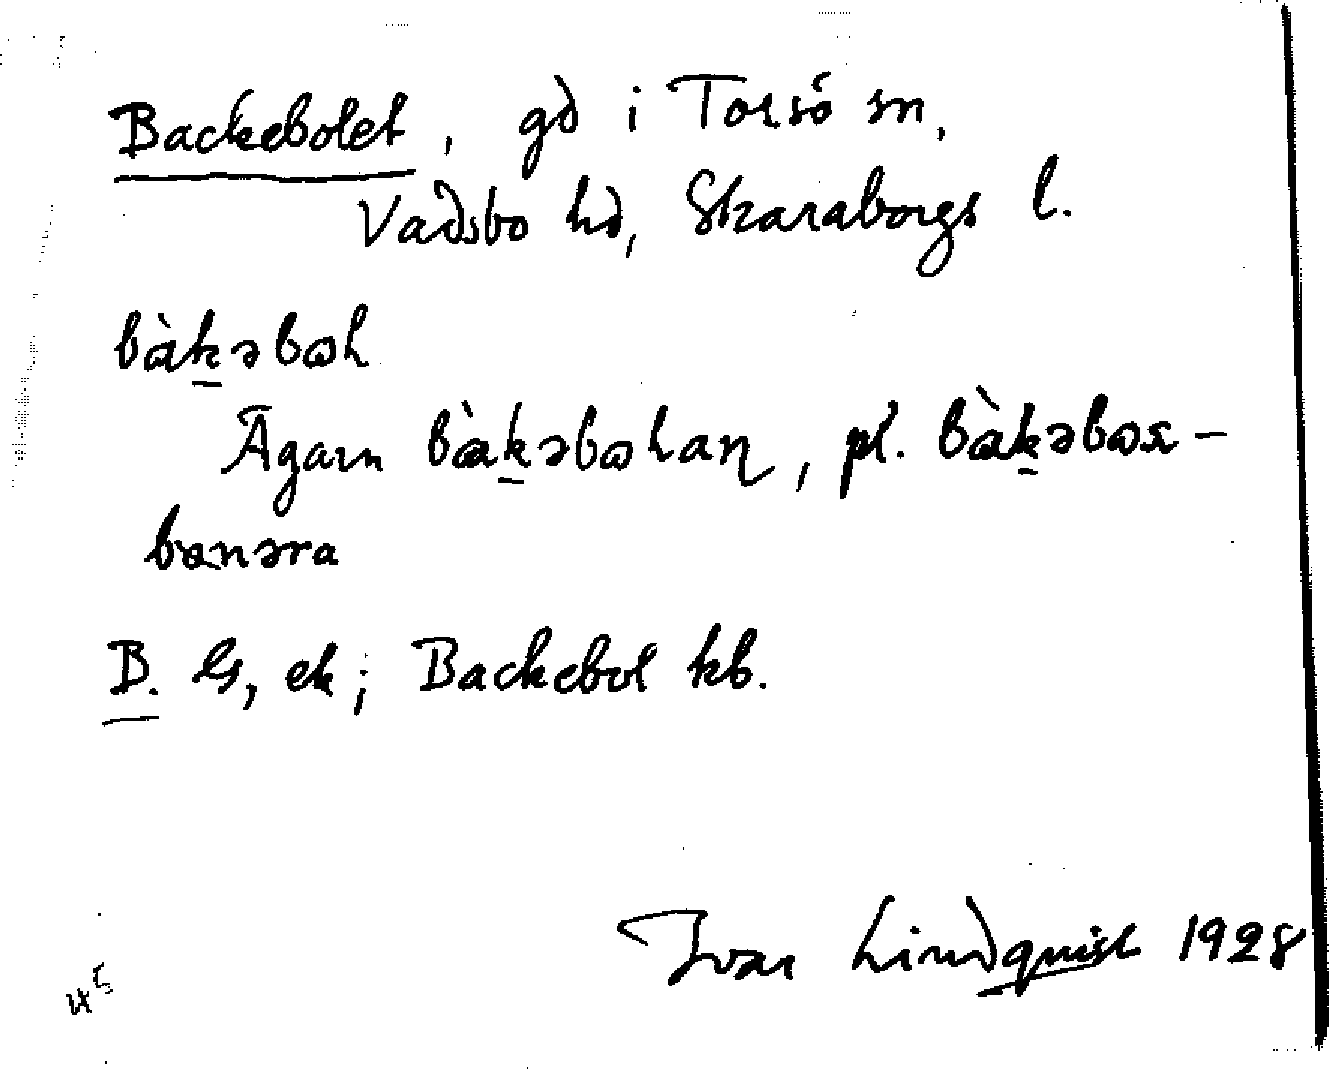 Backebolet, gd i Torsö sn,
Vadsbo hd, Skaraborgs l.
bàk̠əbɷɫ
Ägarn bàk̠əbɷɫaɳ, pl. bàk̠əbɷs-
bɶnəra
B. G, ek; Backebol kb.
Ivar Lindquist 1928